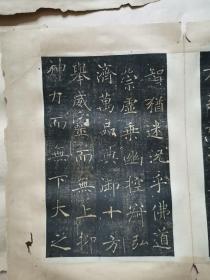 智猶迷況乎佛道
崇虛乘幽控寂弘
濟萬品典御十方
舉威靈而無上抑
神力而無下大之